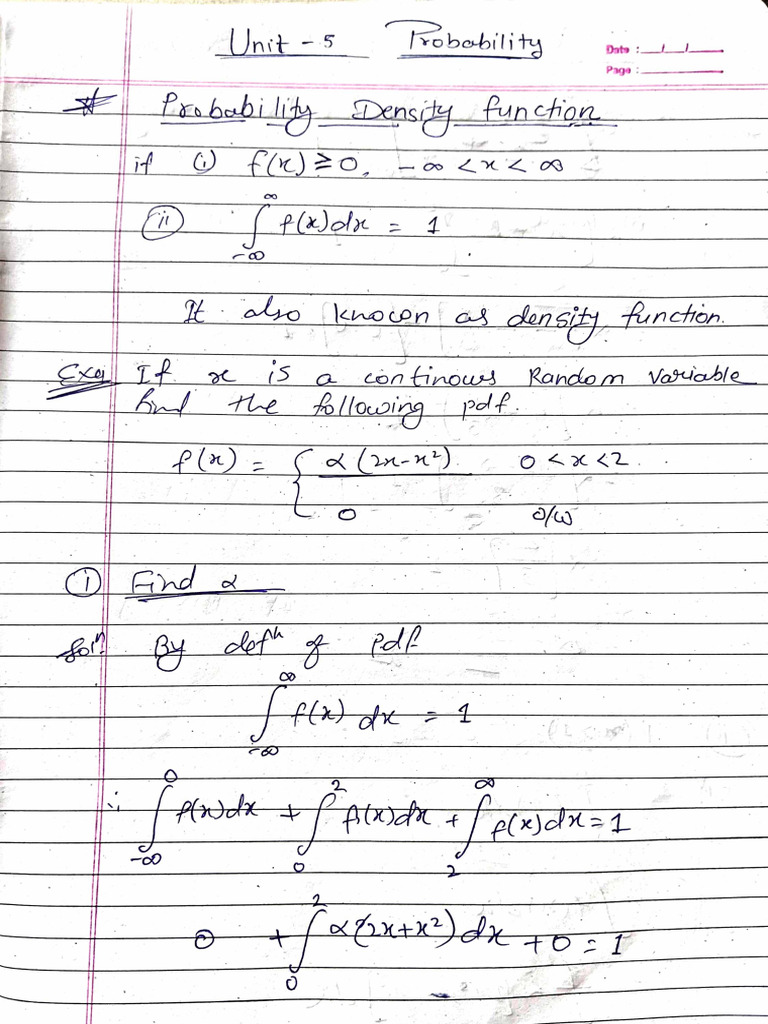 Unit - 5 Probability
Date : __/__/____
Page : ________
* Probability Density function
if (i) f(x) ≥ 0, -∞ < x < ∞
(ii) ∫_{-∞}^{∞} f(x)dx = 1
It also known as density function.
Exa If x is a continous Random variable
find the following pdf.
f(x) = { α(2x-x²) 0 < x < 2
0 o/w
(i) Find α
Solⁿ. By defⁿ of pdf
∫_{-∞}^{∞} f(x) dx = 1
∴ ∫_{-∞}^{0} f(x)dx + ∫_{0}^{2} f(x)dx + ∫_{2}^{∞} f(x)dx = 1
0 + ∫_{0}^{2} α(2x+x²)dx + 0 = 1